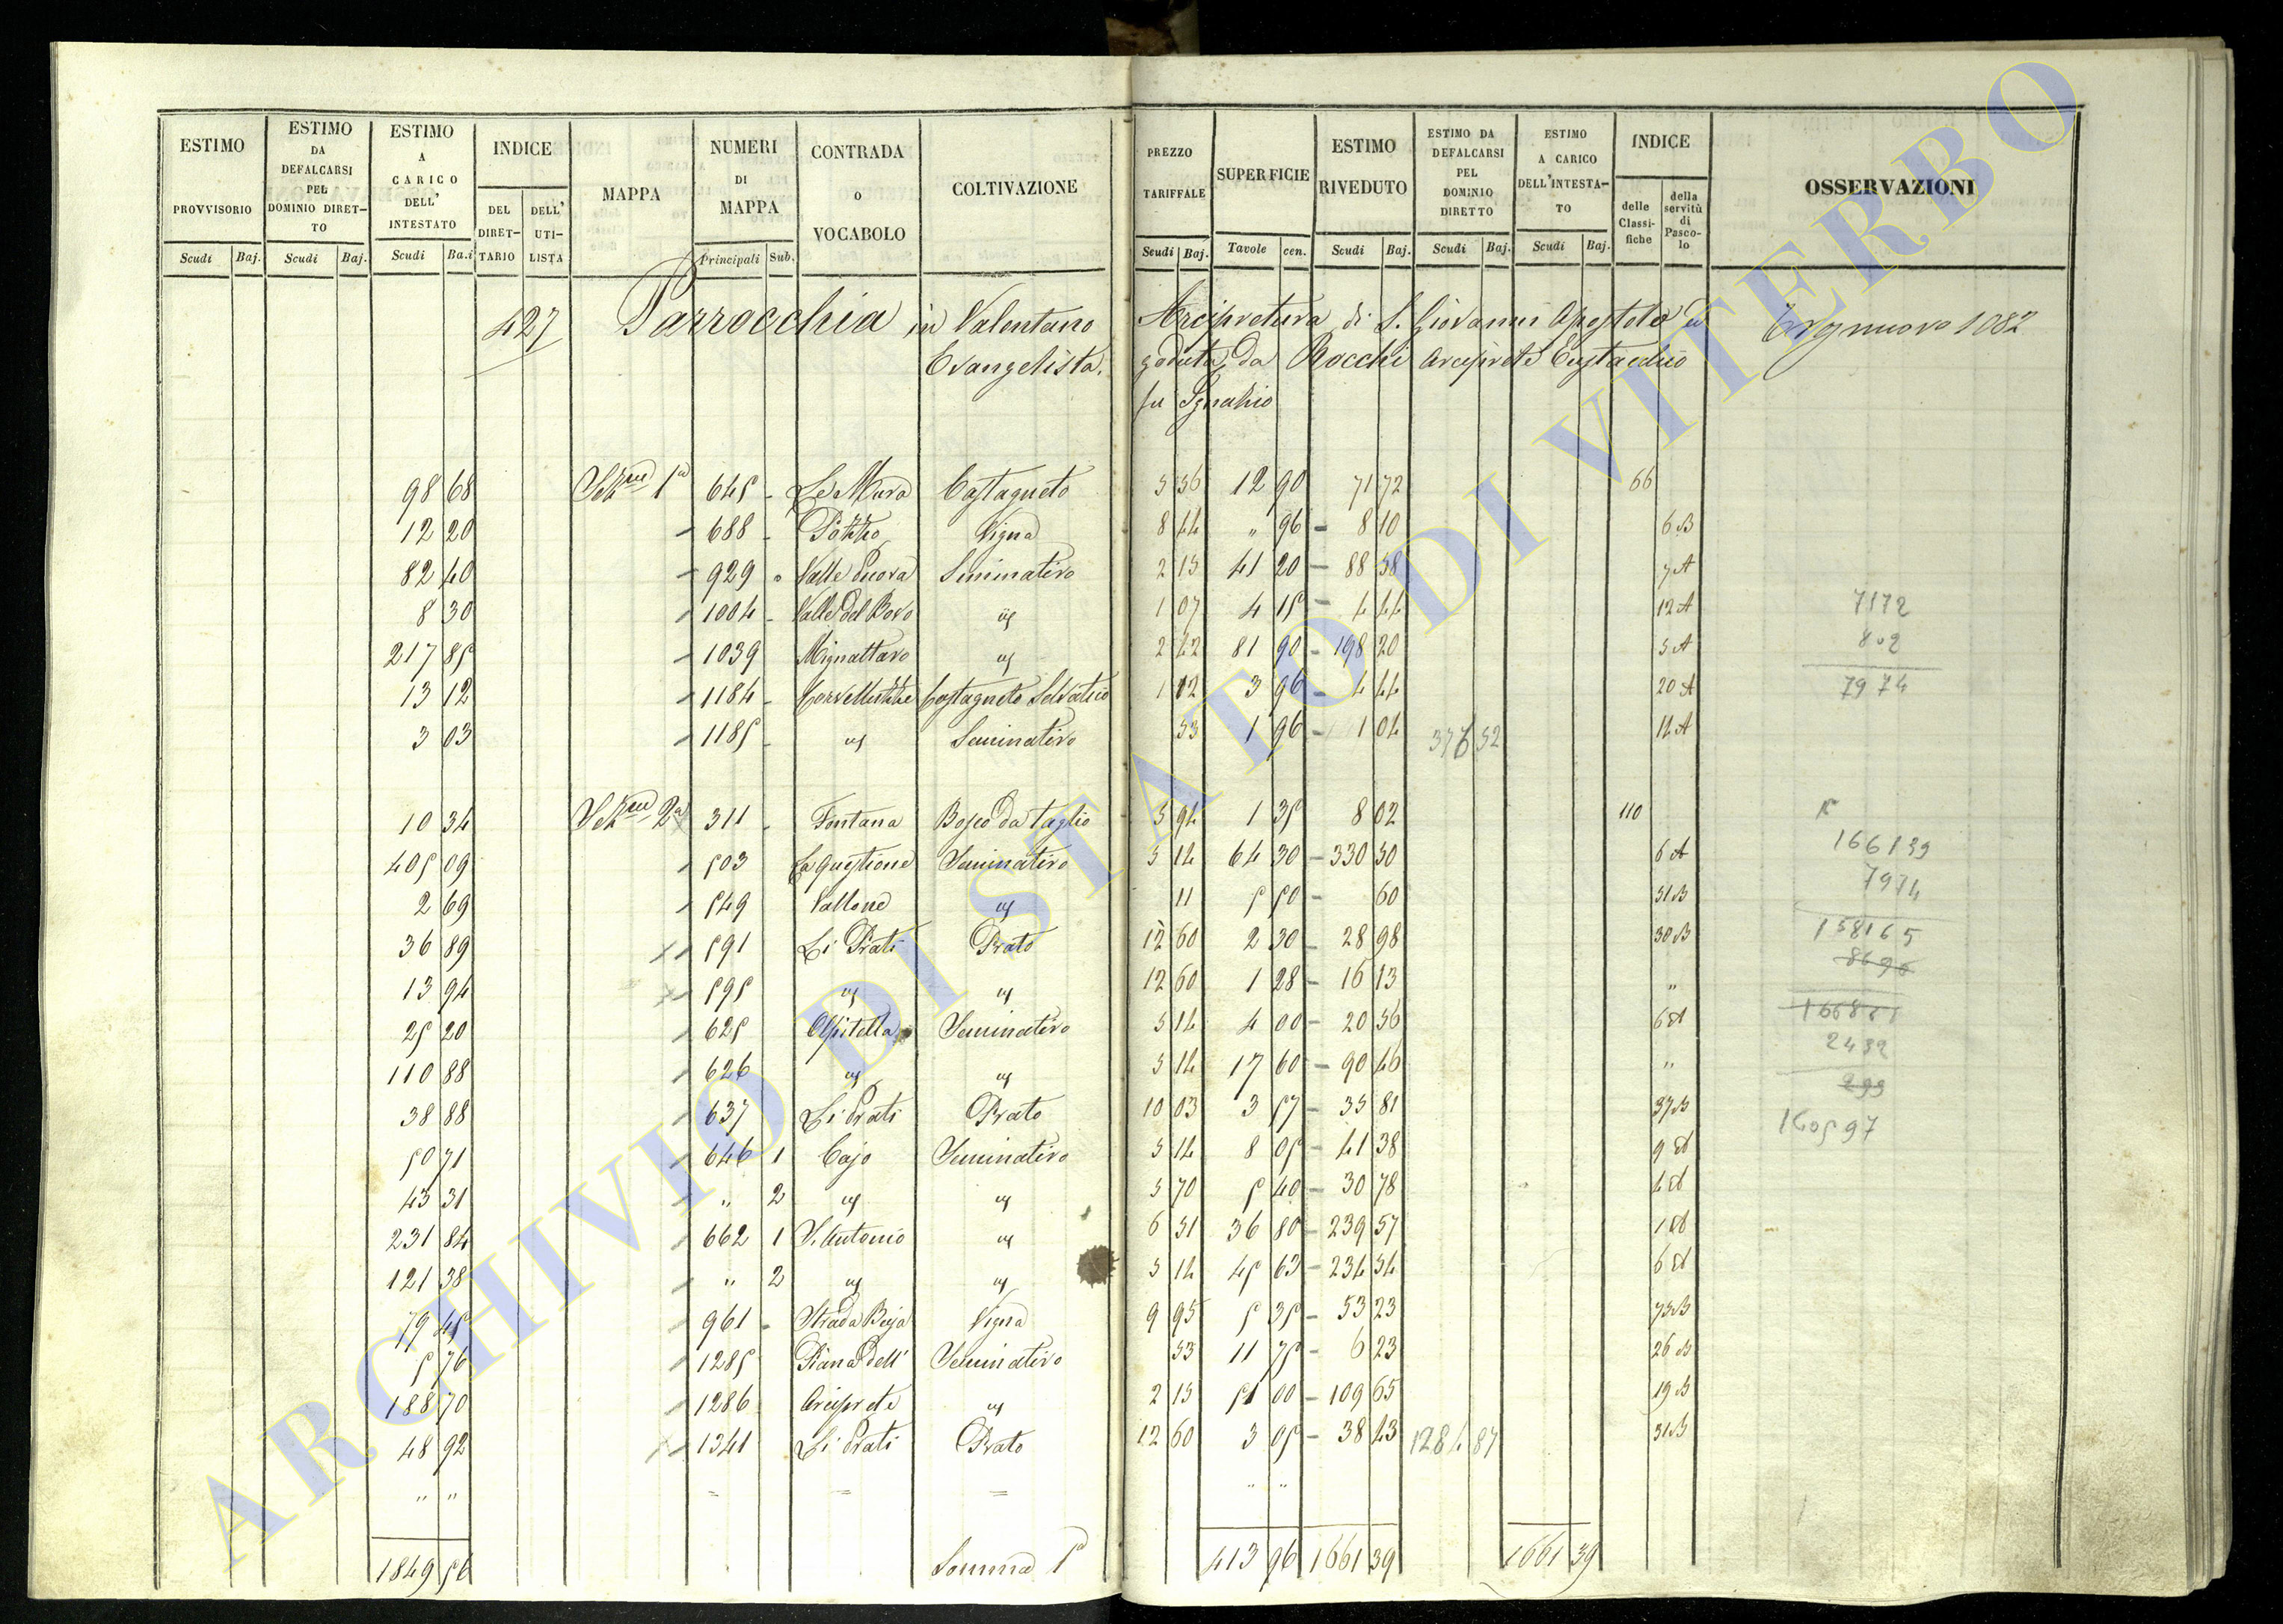 ESTIMO PROVVISORIO Scudi Baj.
ESTIMO DA DEFALCARSI PEL DOMINIO DIRETTO Scudi Baj.
ESTIMO A CARICO DELL' INTESTATO Scudi Ba.i
INDICE DEL DIRETTARIO DELL' UTILISTA
MAPPA
NUMERI DI MAPPA Principali Sub.
CONTRADA o VOCABOLO
COLTIVAZIONE
PREZZO TARIFFALE Scudi Baj.
SUPERFICIE Tavole cen.
ESTIMO RIVEDUTO Scudi Baj.
ESTIMO DA DEFALCARSI PEL DOMINIO DIRETTO Scudi Baj.
ESTIMO A CARICO DELL'INTESTATO Scudi Baj.
INDICE delle Classifiche della servitù di Pascolo
OSSERVAZIONI
427 Parrocchia in Valentano Arcipretura di S. Giovanni Apostolo ed
Evangelista. goduta da Rocchi Arciprete Eustachio
fu Ignazio
nuovo 1082
98 68 1a 645 - Le Mura Castagneto 5 56 12 90 71 72 66
12 20 688 - Pozzo Vigna 8 44 " 96 8 10 6 B
82 40 929 Valle Nuova Seminativo 2 15 41 20 88 58 7 A
8 30 1004 - Valle del Bovo id 1 07 4 15 4 44 12 A
217 85 1039 Mignattaro id 2 42 81 90 198 20 5 A
13 12 1184 - Castagneto Selvatico 1 12 3 96 4 44 20 A
3 03 1185 - id Seminativo 53 1 96 1 04 376 52 14 A
10 34 2a 311 - Fontana Bosco da taglio 5 94 1 35 8 02 110
405 09 503 La questione Seminativo 5 14 64 30 330 50 6 A
2 69 549 Vallone id 11 5 50 60 31 B
36 89 591 Li Prati Prato 12 60 2 30 28 98 30 B
13 94 595 id id 12 60 1 28 16 13 "
25 20 625 Ospitella Seminativo 5 14 4 00 20 56 6 A
110 88 626 id id 5 14 17 60 90 46 "
38 88 637 Li Prati Prato 10 03 3 57 35 81 37 B
50 71 646 1 Cajo Seminativo 5 14 8 05 41 38 9 A
43 31 " 2 id id 5 70 5 40 30 78 4 A
231 84 662 1 S. Antonio id 6 51 36 80 239 57 1 A
121 38 " 2 id id 5 14 45 63 234 54 6 A
79 45 961 - Strada Bagja Vigna 9 95 5 35 53 23 73 B
5 76 1285 Piana dell' Seminativo 53 11 75 6 23 26 B
188 70 1286 Arciprete id 2 15 51 00 109 65 19 B
48 92 1341 Li Prati Prato 12 60 3 05 38 43 1284 87 31 B
" " = = = " "
1849 56 Somma 413 96 1661 39 1661 39
7172
802
7974
166139
7974
158165
8696
2432
299
160597
ARCHIVIO DI STATO DI VITERBO